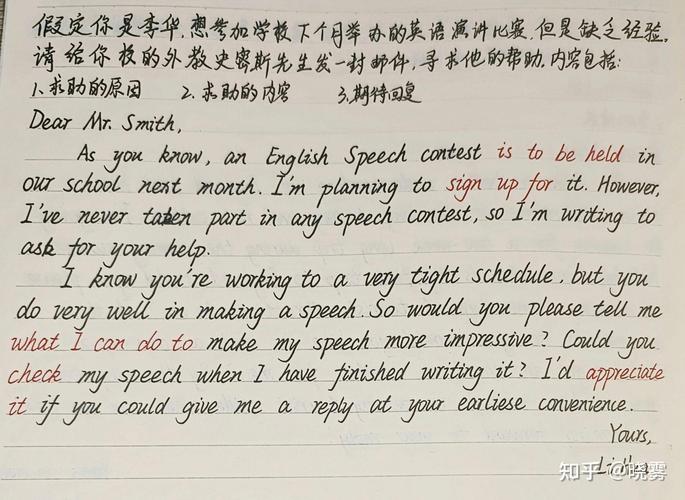 假定你是李华,想参加学校下个月举办的英语演讲比赛,但是缺乏经验,
请给你校的外教史密斯先生发一封邮件,寻求他的帮助,内容包括:
1、求助的原因 2、求助的内容 3、期待回复
Dear Mr. Smith,
As you know, an English Speech contest is to be held in
our school next month. I'm planning to sign up for it. However,
I've never taken part in any speech contest, so I'm writing to
ask for your help.
I know you're working to a very tight schedule, but you
do very well in making a speech. So would you please tell me
what I can do to make my speech more impressive? Could you
check my speech when I have finished writing it? I'd appreciate
it if you could give me a reply at your earliese convenience.
Yours,
Li Hua
知乎 @晓雾